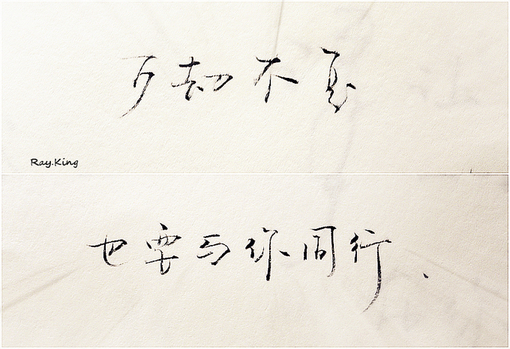 万劫不复
Ray.King
也要与你同行.